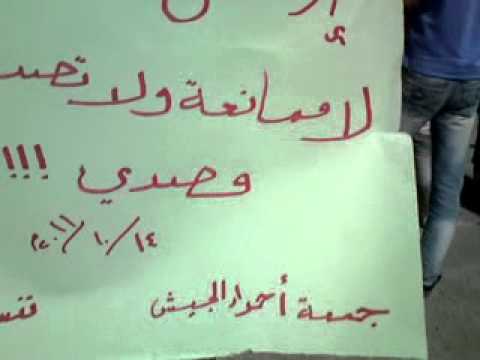 لا ممانعة ولا تصد
وصدي !!!
٢٠١١/١٠/١٤
جمعة أحرار الجيش